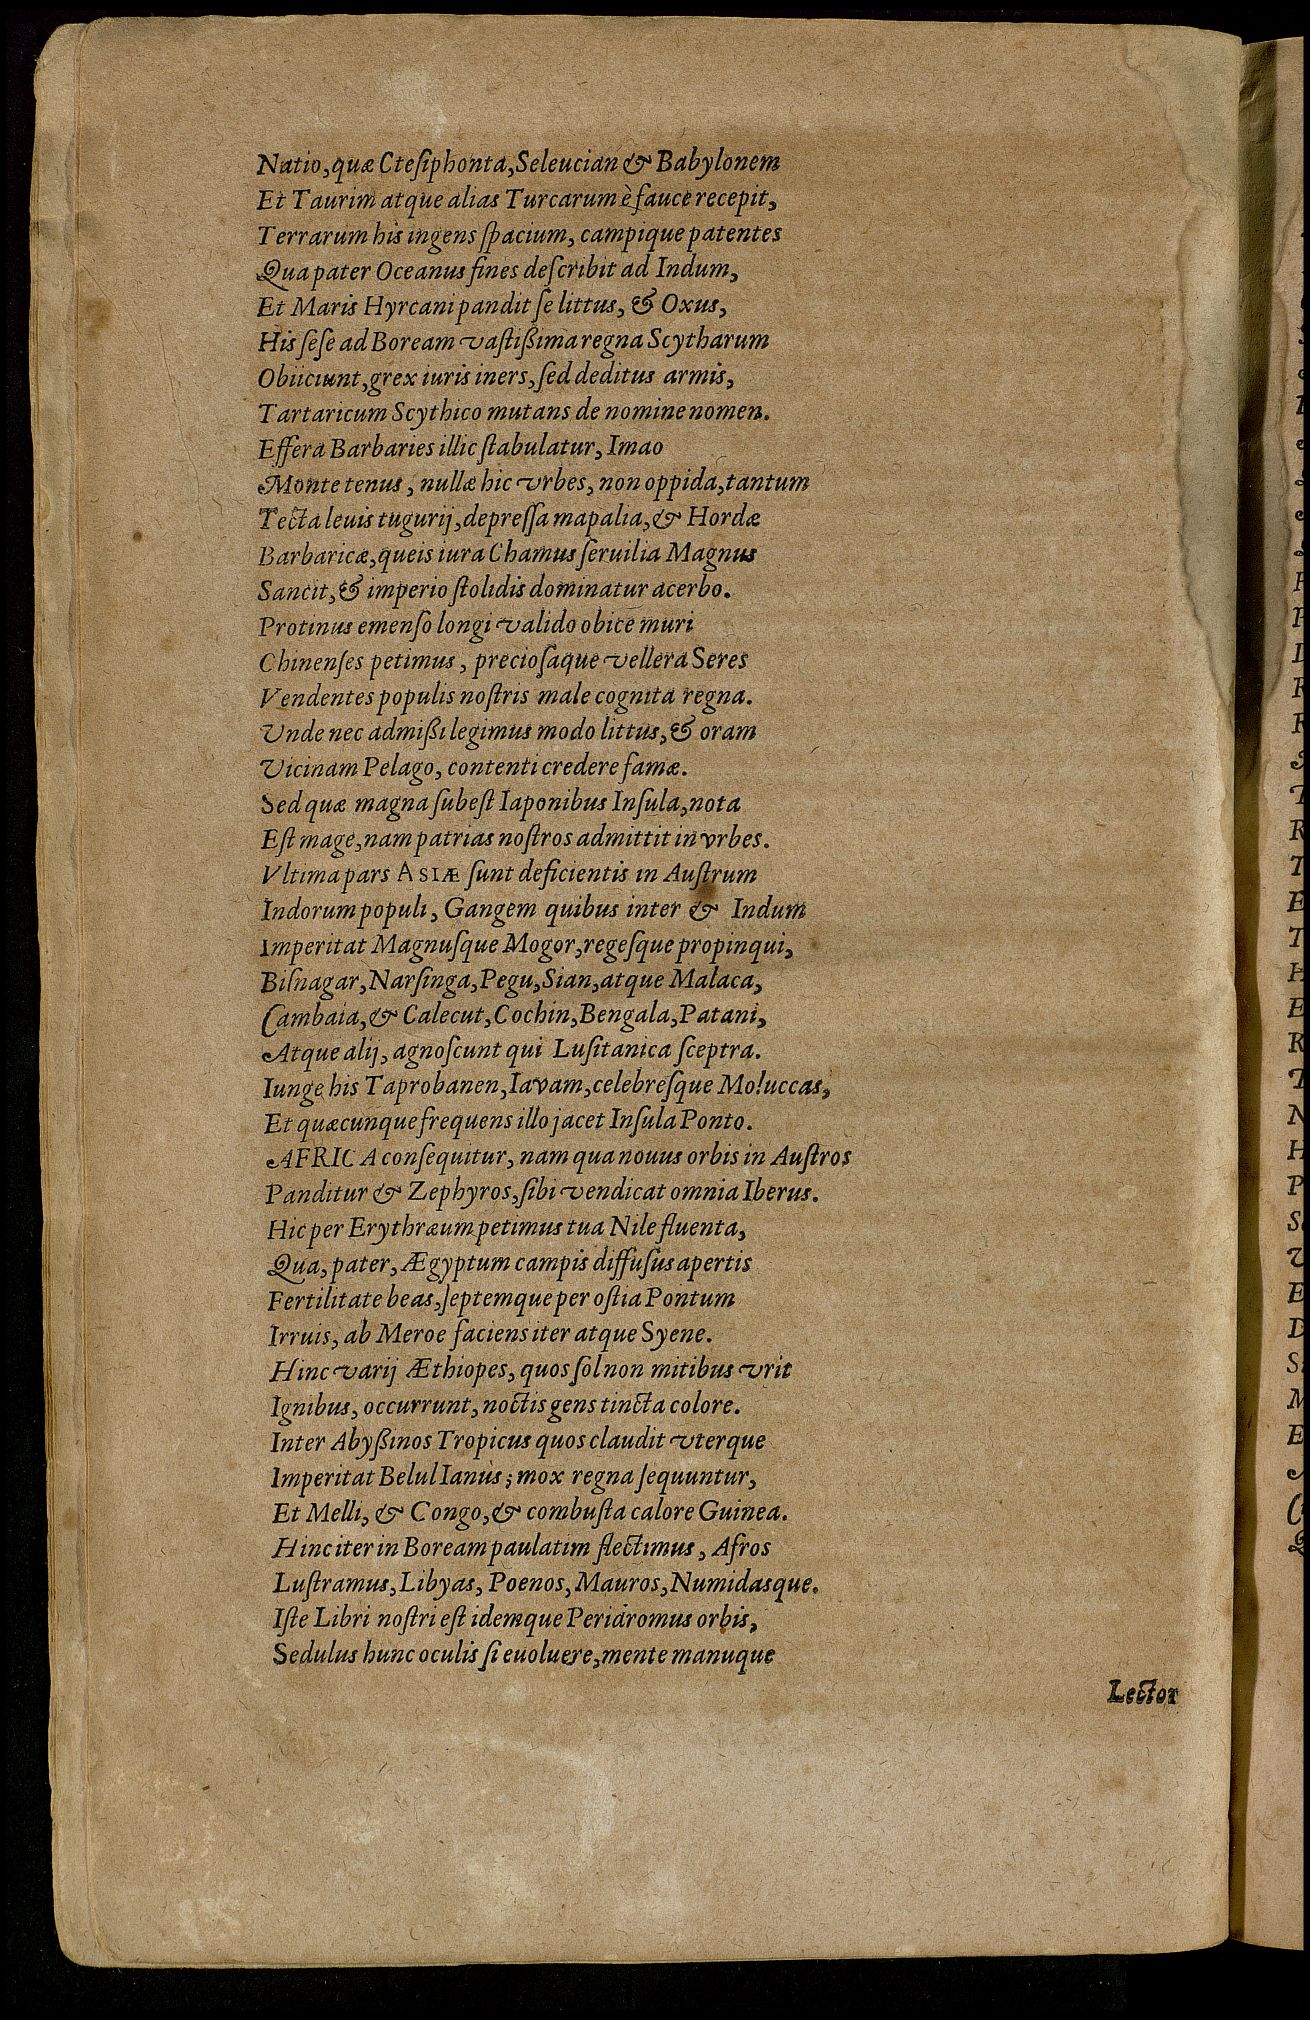 Natio, quæ Cteſiphonta, Seleucian & Babylonem
Et Taurim atque alias Turcarum è fauce recepit,
Terrarum his ingens ſpacium, campique patentes
Qua pater Oceanus fines deſcribit ad Indum,
Et Maris Hyrcani pandit ſe littus, & Oxus,
His ſeſe ad Boream vaſtißima regna Scytharum
Obiiciunt, grex iuris iners, ſed deditus armis,
Tartaricum Scythico mutans de nomine nomen.
Effera Barbaries illic ſtabulatur, Imao
Monte tenus, nullæ hic vrbes, non oppida, tantum
Tecta leuis tugurij, depreſſa mapalia, & Hordæ
Barbaricæ, queis iura Chamus ſeruilia Magnus
Sancit, & imperio ſtolidis dominatur acerbo.
Protinus emenſo longi valido obice muri
Chinenſes petimus, precioſaque vellera Seres
Vendentes populis noſtris male cognita regna.
Unde nec admißi legimus modo littus, & oram
Vicinam Pelago, contenti credere famæ.
Sed quæ magna ſubeſt Iaponibus Inſula, nota
Eſt mage, nam patrias noſtros admittit in vrbes.
Vltima pars ASIÆ ſunt deficientis in Auſtrum
Indorum populi, Gangem quibus inter & Indum
Imperitat Magnuſque Mogor, regeſque propinqui,
Biſnagar, Narſinga, Pegu, Sian, atque Malaca,
Cambaia, & Calecut, Cochin, Bengala, Patani,
Atque alij, agnoſcunt qui Luſitanica ſceptra.
Iunge his Taprobanen, Iavam, celebreſque Moluccas,
Et quæcunque frequens illo jacet Inſula Ponto.
AFRICA conſequitur, nam qua nouus orbis in Auſtros
Panditur & Zephyros, ſibi vendicat omnia Iberus.
Hic per Erythræum petimus tua Nile fluenta,
Qua, pater, Ægyptum campis diffuſus apertis
Fertilitate beas, ſeptemque per oſtia Pontum
Irruis, ab Meroe faciens iter atque Syene.
Hinc varij Æthiopes, quos ſol non mitibus vrit
Ignibus, occurrunt, noctis gens tincta colore.
Inter Abyßinos Tropicus quos claudit vterque
Imperitat Belul Ianus; mox regna ſequuntur,
Et Melli, & Congo, & combuſta calore Guinea.
Hinc iter in Boream paulatim flectimus, Afros
Luſtramus, Libyas, Poenos, Mauros, Numidasque.
Iſte Libri noſtri eſt idemque Peridromus orbis,
Sedulus hunc oculis ſi euoluere, mente manuque
Lector